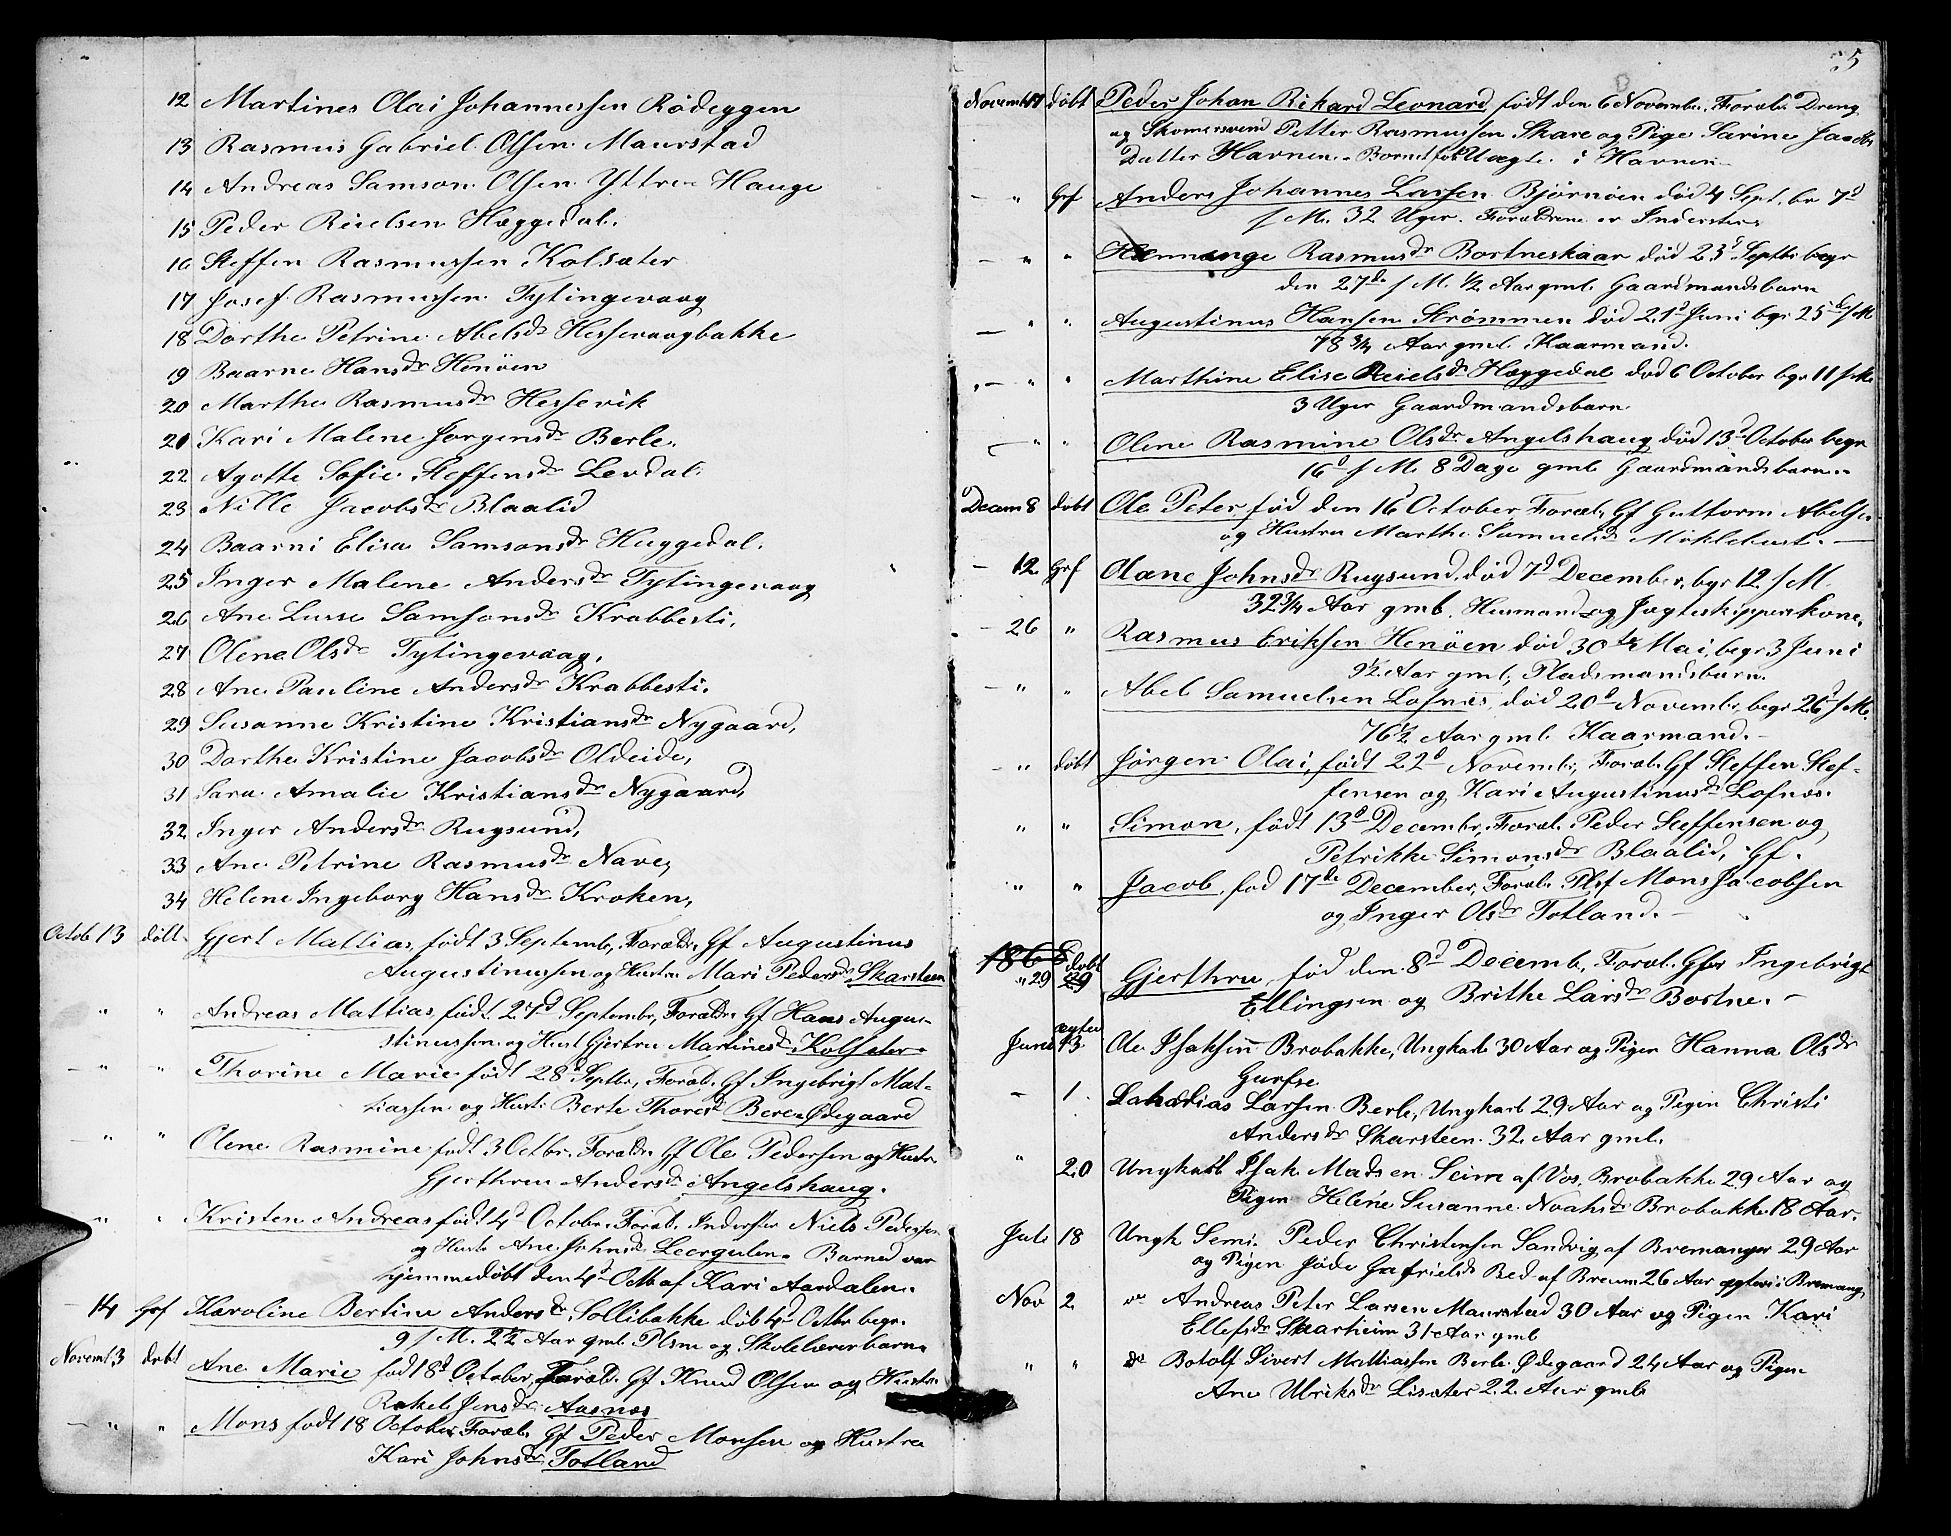 12 Martines Olai Johannessen Rödeggen
13 Rasmus Gabriel Olsen Maurstad
14 Andreas Samson Olsen Yttre Hauge
15 Peder Reielsen Hæggedal.
16 Steffen Rasmussen Kolsæter
17 Josef Rasmussen Tytingevaag
18 Dorthe Petrine Abelsdr Hessevaagbakke
19 Baarne Hansdr Henöen
20 Marthe Rasmusdr Hessevik
20 Kari Malene Jörgensdr Berle.
22 Agotte Sofie Steffensdr Levdal.
23 Nille Jacobsdr Blaalid
24 Baarni Elisa Samsonsdr Huggedal.
25 Inger Malene Andersdr Tytingevaag
26 Ane Lusse Samsonsdr Krabbesti.
27 Olene Olsdr Tytingevaag.
28 Ane Pauline Andersdr Krabbesti.
29 Susanne Kristine Kristiansdr Nygaard,
30 Dorthe Kristine Jacobsdr Oldeide,
31 Sara Amalie Kristiansdr Nygaard,
32 Inger Andersdr Rugsund,
33 Ane Petrine Rasmusdr Nave,
34 Helene Ingeborg Hansdr Kroken,
Octob 13 döbt. Gjert Mattias, födt 3 Septemb, Foræld. Gf Augustinus
Augustinussen og Hustru Mari Pedersdr Skarsteen
" " Andreas Mattias, födt 27d Septembr, Foræld. Gf Hans Augus-
stinussen og Hust Gjertru Martinesdr Kolseter
- " " Thorine Marie födt 28d Septbr, Foræld. Gf Ingebrigt Mat-
tiassen og Hust. Berte Thoresd Bere-Ødegaard
- " " Olene Rasmine födt 3 Octbr. Foræld. Gf Ole Pedersen og Hustr
Gjerthru Andersdr Angelshaug.
" " Kristen Andreas födt 4d Octobr. Foræl. Inderster Niels Pedersen
og Hustr Ane Johnsdr Leergulen. Barned var
hjemmedöbt den 4d Octb af Kari Aardalen.
- 14 Grf Karoline Bertine Andersdr Sollibakke död 4d Octbr begr.
9 s M. 2½ Aar gml. Plsm og Skolelærerbarn
Novem 3 döbt Ane Marie föd 18d October, Foræld. Gf Knud Olsen og Hustru
Rakel Jensdr Aasnæs
- " " Mons födt 18 October Foræl. Gf Peder Monsen og Hustru
Kari Johnsdr Totland
Novemb 17 döbt Peder Johan Rikard Leonard, födt den 6 Novembr. Foræl. Dreng
og Skomersvend Petter Rasmussen Skare og Pige Sarine Jacobs
Datter Havnen. Barnet föd Uægte i Havnen
- " Grf Anders Johannes Larsen Björnöen död 4 Sept. br 7d
s M. 32 Uger. Forældrene er Inderster
- " " Hennange Rasmusdr Bortneskaar död 23d Septbr begr
den 27de s M. ½ Aar gml. Gaardmandsbarn
- " " Augustinus Hansen Strömmen död 21d Juni bgr 25de s M
78 ¾ Aar gml. Kaarmand.
- " " Marthine Elise Reielsdr Hæggedal död 6 October bgr 11 s M.
3 Uger Gaardmandsbarn
- " " Olene Rasmine Olsdr Angelshaug död 13d October begr
16d s M. 8 Dage gml. Gaardmandsbarn.
Decem 8 döbt Ole Peter, föd den 16d October Foræl. Gf Guttorm Abelsen
og Hustru Marthe Samuelsdr Möklebust.
- 12 Grf Olane Johnsdr Rugsund, död 7d December, bgr 12 s M.
32¾ Aar gml. Husmands og Jagteskipperkone.
- 26 " Rasmus Eriksen Henöen död 30te Mai, begr 3 Juni
9½ Aar gml, Pladsmandsbarn.
- " " Abel Samuelsen Lofnæs, död 20d Novembr, begr 26d s M.
76½ Aar gml. Kaarmand.
- " döbt Jörgen Olai, födt 22d Novembr, Foræl. Gf Steffen Stef-
fensen og Kari Augustinusdr Lofnæs.
" " Simon, födt 13d Decembr, Foræl. Peder Steffensen og
Petrikke Simonsdr Blaalid, Gf.
" " Jacob, föd 17de December, Foræl. Plsf Mons Jacobsen
og Inger Olsdr Totland.
1868 döbt
" 29 29 Gjerthru föd den 8d Decemb, Foræl. Gfor Ingebrigt
Ellingsen og Brithe Larsdr Bortne.
ægtev
Juni 13 Ole Isaksen Brobakke, Ungkarl 30 Aar og Pigen Hanna Olsdr
- 1 Lahadias Larsen Berle, Ungkarl 29 Aar og Pigen Christi
Andersdr Skarsteen 32 Aar gml.
" 20 Ungkarl Isak Madsen Seim af Vos, Brobakke 29 Aar og
Pigen Helene Susanne Noahsdr Brobakke 18 Aar.
Juli 18 Ungk Semi. Peder Christensen Sandvig af Bremanger 29 Aar
og Pigen Jöde Gabrielsdr Bed af Breum 26 Aar ægtevi i Bremang
Nov 2 do Andreas Peter Larsen Maurstad 30 Aar og Pigen Kari
Ellefsdr Skaarheim 31 Aar gml
" " do Botolf Sivert Mattiassen Berle Ødegaard 24 Aar og Pigen
Ane Ulriksdr Lisæter 22 Aar gml